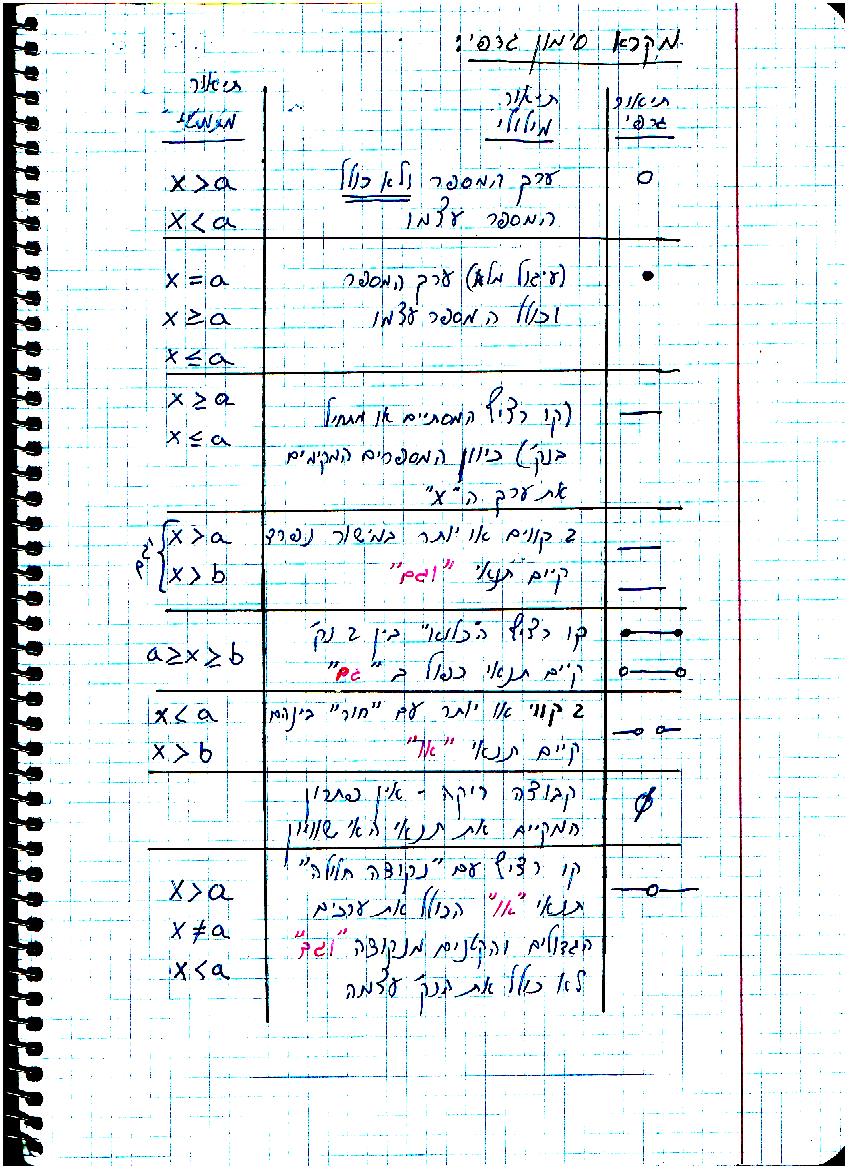 מקרא סימון גרפי:
תיאור גרפי
תיאור מילולי
תיאור מתמטי
ערך המספר ולא כולל x > a
המספר עצמו x < a
(עיגול מלא) ערך המספר x = a
וכולל המספר עצמו x ≥ a
x ≤ a
(קו רציף המסתיים או מתחיל x ≥ a
בנק') כיוון המספרים המקימים x ≤ a
את ערך ה"x"
2 קווים או יותר במישור נפרד x > a
קיים תנאי "וגם" x > b וגם
קו רציף ה"כלוא" בין 2 נק' a ≥ x ≥ b
קיים תנאי כפול ב "גם"
2 קווי או יותר עם "חור" ביניהם x < a
קיים תנאי "או" x > b
∅ קבוצה ריקה - אין פתרון
המקיים את תנאי האי שוויון
קו רציף עם "נקודה חלולה"
תנאי "או" הכולל את ערכים x > a
הגדולים והקטנים מנקודה "וגם" x ≠ a
לא כולל את הנק' עצמה x < a